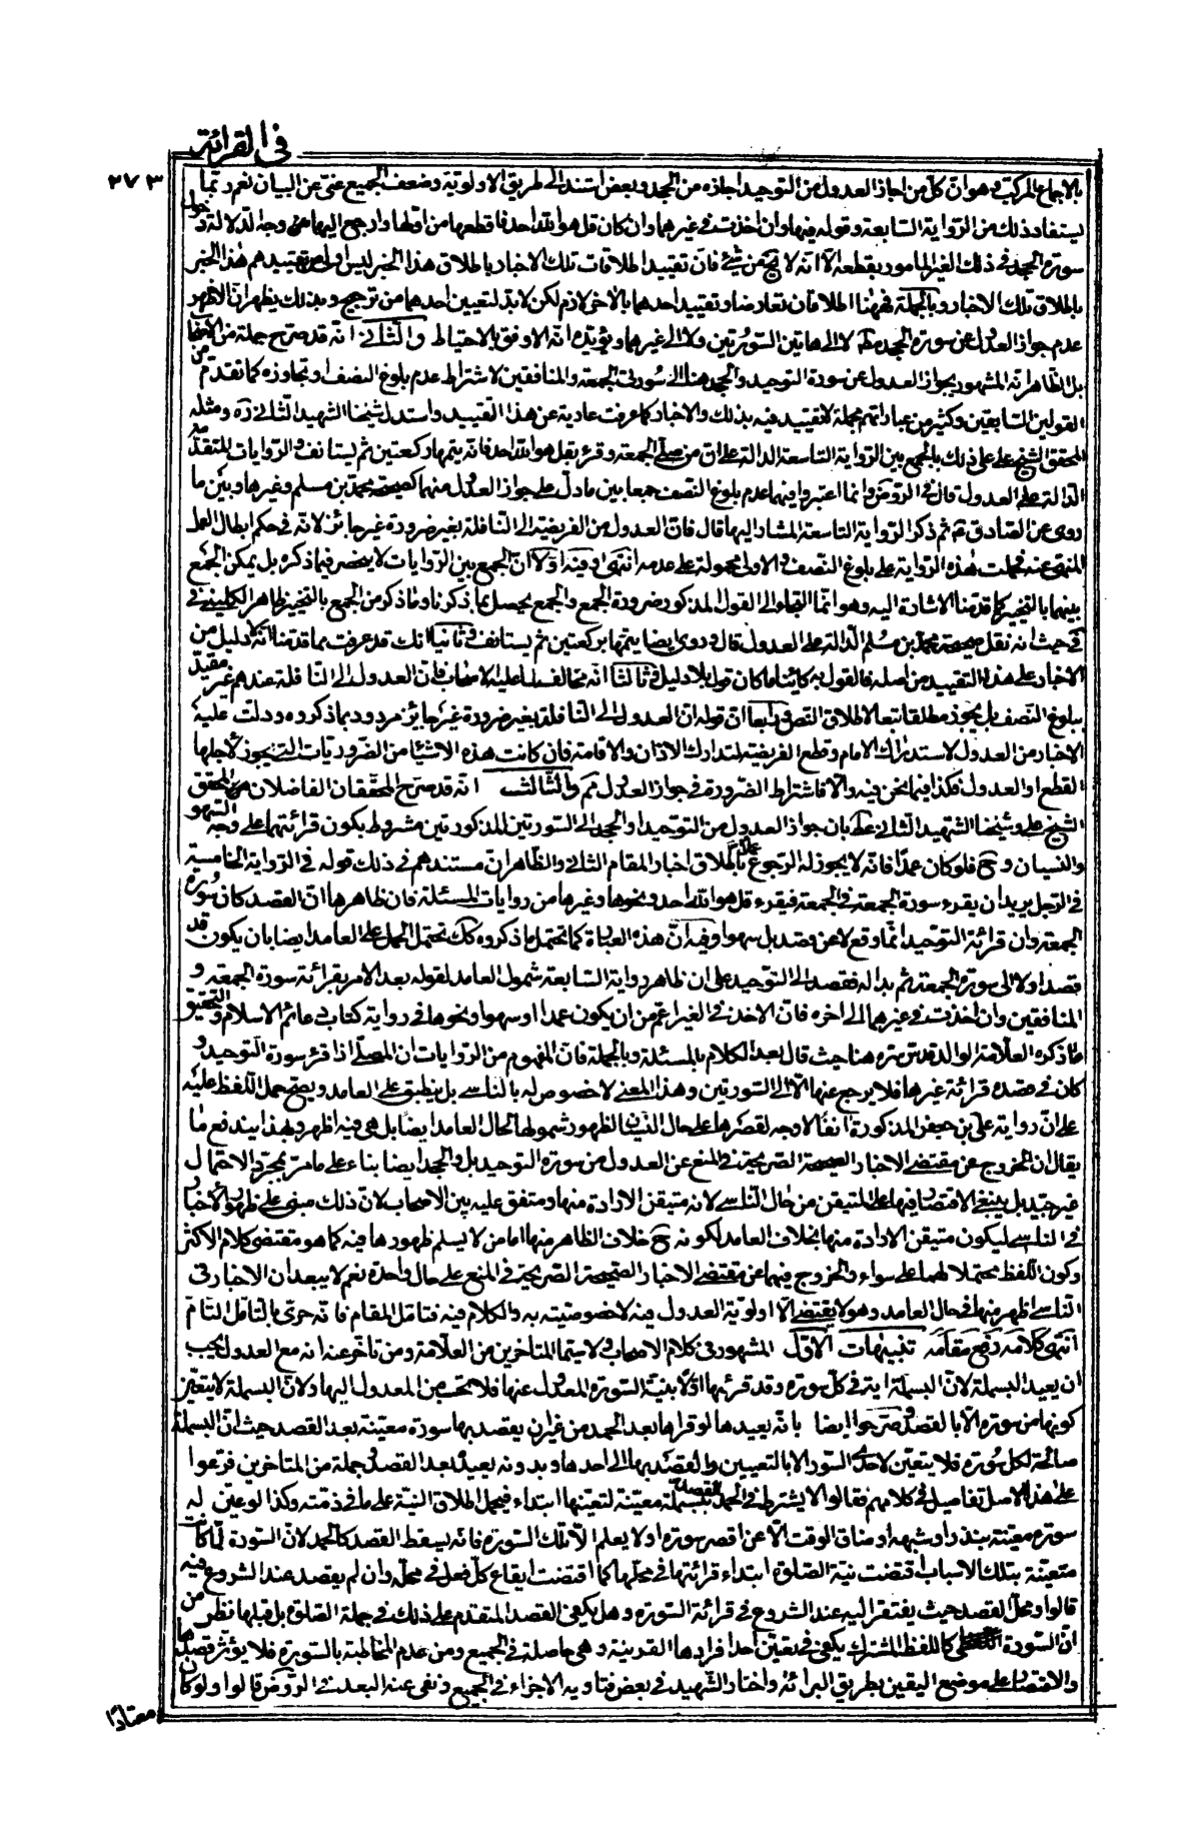 في القرائة
٢٧٣
بالاجماع المركب وهو ان كل من اجاز العدول من التوحيد اجازه من الجحد وبعض استند الى طريق الاولوية وضعف الجميع غنى عن البيان نعم ربما
يستفاد ذلك من الرواية السابعة وقوله فيها وان اخذت في غيرهما وان كان قل هو الله احد فاقطعها من اولها وارجع اليها من وجه الدلالة دخول
سورة الجحد في ذلك الغير المامور بقطعه الا انه لا يخ من شئ فان تقييد اطلاقات تلك الاخبار باطلاق هذا الخبر ليس اولى من تقييدهم هذا الخبر
باطلاق تلك الاخبار وبالجملة فههنا اطلاقان تعارضا وتقييد احدهما بالاخر لازم لكن لا بد لتعيين احدهما من ترجيح وبذلك يظهر ان الاظهر
عدم جواز العدول عن سورة الجحد مط لا الى هاتين السورتين ولا الى غيرهما ويؤيده انه الاوفق بالاحتياط والثاني انه قد صرح جملة من الاصحاب
بل الظاهر انه المشهور بجواز العدول عن سورة التوحيد والجحد هنا الى سورتي الجمعة والمنافقين لاشتراط عدم بلوغ النصف او تجاوزه كما تقدم من
القولين السابقين وكثير من عباداتهم مجملة لا تقييد فيه بذلك والاخبار كما عرفت عادية عن هذا التقييد واستدل شيخنا الشهيد الثاني ره ومثله
المحقق الشيخ علي على ذلك بالجمع بين الرواية التاسعة الدالة على ان من صلى الجمعة وقرء بقل هو الله احد فانه يتمها ركعتين ثم يستانف والروايات المتقدمة
الدالة على العدول قال في الروض وانما اعتبروا فيهما عدم بلوغ النصف جمعا بين ما دل على جواز العدول منهما كصحيحة محمد بن مسلم وغيرها وبين ما
روى عن الصادق ع ثم ذكر الرواية التاسعة المشار اليها قال فان العدول من الفريضة الى النافلة بغير ضرورة غير جائز لانه في حكم ابطال العمل
المنهى عنه فحملت هذه الرواية على بلوغ النصف والاولى محمولة على عدمه انتهى وفيه اولا ان الجمع بين الروايات لا ينحصر فيما ذكره بل يمكن الجمع
بينهما بالتخيير كما قدمنا الاشارة اليه وهو انما التجاوا الى القول المذكور ضرورة الجمع والجمع يحصل بما ذكرنا وما ذكر من الجمع بالتخيير ظاهر الكليني في
في حيث انه نقل صحيحة محمد بن مسلم الدالة على العدول قال وروى ايضا يتمها بركعتين ثم يستانف وثانيا انك قد عرفت بما قدمنا انه لا دليل من
الاخبار على هذا التقييد من اصله فالقول به كائنا ما كان قول بلا دليل وثالثا انه مخالف لما عليه الاصحاب فان العدول الى النافلة عندهم غير مقيد
ببلوغ النصف بل يجوز مطلقا تبعا لاطلاق النص ورابعا ان قوله ان العدول الى النافلة بغير ضرورة غير جائز مردود بما ذكروه ودلت عليه
الاخبار من العدول لاستدراك الامام وقطع الفريضة لتدارك الاذان والاقامة فان كانت هذه الاشياء من الضروريات التي يجوز لاجلها
القطع او العدول فكذا فيما نحن فيه والا فاشتراط الضرورة في جواز العدول ثم والثالث انه قد صرح المحققان الفاضلان من المحقق
الشيخ علي وشيخنا الشهيد الثاني عط بان جواز العدول من التوحيد او الجحد الى السورتين المذكورتين مشروط بكون قرائتهما على وجه السهو
والنسيان وح فلو كان عمدا فانه لا يجوز له الرجوع عملا باطلاق اخبار المقام الثاني والظاهر ان مستندهم في ذلك قوله في الرواية الخامسة
في الرجل يريد ان يقرء سورة الجمعة في الجمعة فيقرء قل هو الله احد ونحوها وغيرها من روايات المسئلة فان ظاهرها ان القصد كان سورة
الجمعة وان قرائة التوحيد انما وقع لا عن قصد بل سهوا وفيه ان هذه العبارة كما تحتمل ما ذكروه كك تحتمل الحمل على العامد ايضا بان يكون قد
قصد اولا الى سورة الجمعة ثم بدا له فقصد الى التوحيد على ان ظاهر رواية السابعة شمول العامد لقوله بعد الامر بقرائة سورة الجمعة و
المنافقين وان اخذت في غيرهما الى اخره فان الاخذ في الغير اعم من ان يكون عمدا او سهوا ونحوها في رواية كتاب دعائم الاسلام والتحقيق
ما ذكره العلامة الوالد قدس سره هنا حيث قال بعد الكلام بالمسئلة وبالجملة فان المفهوم من الروايات ان المصلى اذا قرء سورة التوحيد و
كان في قصده قرائة غيرها فلا يرجع عنها الا الى السورتين وهذا المعنى لا خصوص له بالناسى بل ينطبق على العامد ويصح حمل اللفظ عليه
على ان رواية علي بن جعفر المذكورة انفا لا وجه لقصرها على حال النسيان لظهور شمولها لحال العامد ايضا بل هي فيه اظهر وبهذا يندفع ما
يقال ان الخروج عن مقتضى الاخبار الصحيحة الصريحة في المنع عن العدول من سورة التوحيد بل والجحد ايضا بناء على ما مر بمجرد الاحتمال
غير جيد بل ينبغي الاقتصار فيها على المتيقن من حال الناسى لانه متيقن الارادة منها ومتفق عليه بين الاصحاب لان ذلك مبنى على ظهور الاخبار
في الناسى ليكون متيقن الارادة منها بخلاف العامد لكونه ح خلاف الظاهر منها اما من لا يسلم ظهورها فيه كما هو مقتضى كلام الاكثر
وكون اللفظ محتملا لهما على سواء والخروج فيهما عن مقتضى الاخبار الصحيحة الصريحة في المنع على حال واحدة نعم لا يبعد ان الاخبار في
الناسى اظهر منها في حال العامد وهو لا يقتضى الا اولوية العدول فيه لا خصوصيته به والكلام فيه فتامل المقام فانه حرى بالتامل التام
انتهى كلامه رفع مقامه تنبيهات الاول المشهور في كلام الاصحاب لا سيما المتاخرين من العلامة ومن تاخر عنه انه مع العدول يجب
ان يعيد البسملة لان البسملة اية في كل سورة وقد قرئها اولا بنية السورة المعدول عنها فلا تحسب من المعدول اليها ولان البسملة لا يتعين
كونها من سورة الا بالقصد وصرحوا ايضا بانه يعيدها لو قراها بعد الحمد من غير ان يقصد بها سورة معينة بعد القصد حيث ان البسملة
صالحة لكل سورة فلا يتعين لاحدى السور الا بالتعيين والقصد بها الى احدها وبدونه يعيد بعد القصد وجملة من المتاخرين فرعوا
على هذا الاصل تفاصيل في كلامهم فقالوا لا يشترط في الحمد القصد ببسملة معينة لتعينها ابتداء فيحمل اطلاق النية على ما في ذمته وكذا لو عين له
سورة معينة بنذر او شبهه او ضاق الوقت الا عن اقصر سورة او لا يعلم الا تلك السورة فانه يسقط القصد كالحمد لان السورة لما كانت
متعينة بتلك الاسباب اقتضت نية الصلوة ابتداء قرائتها في محلها كما اقتضت ايقاع كل فعل في محله وان لم يقصد عند الشروع فيه
قالوا ومحل القصد حيث يفتقر اليه عند الشروع في قرائة السورة وهل يكفى القصد المتقدم على ذلك في جملة الصلوة بل قبلها نظر من
ان السورة كاللفظ المشترك يكفى في تعين احد افرادها القرينة وهي حاصلة في الجميع ومن عدم المخاطبة بالسورة فلا يؤثر قصدها
والاقتصار على موضع اليقين بطريق البرائة واختار الشهيد في بعض فتاويه الاجزاء في الجميع ونفى عنه البعد في الروض قالوا ولو كان
معتادا